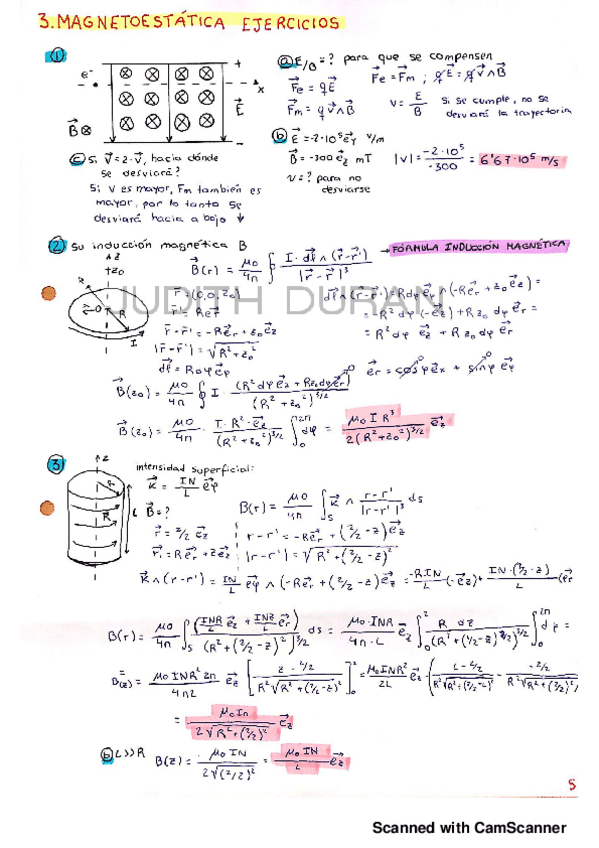 3. MAGNETOESTÁTICA EJERCICIOS
① e⁻ + x E⃗ B⃗⊗ −
ⓐ E/B = ? para que se compensen
F⃗e = qE⃗ F⃗e = F⃗m ; qE⃗ = q v⃗ ∧ B⃗
F⃗m = q v⃗ ∧ B⃗ v = E/B si se cumple, no se desviará la trayectoria
ⓑ E⃗ = -2·10⁵ e⃗y V/m
B⃗ = -300 e⃗z mT |v| = -2·10⁵/-300 = 6'67·10⁵ m/s
v = ? para no desviarse
ⓒ Si V⃗ = 2·V⃗, hacia dónde
se desviará?
Si v es mayor, Fm también es
mayor, por lo tanto se
desviará hacia abajo ↓
② su inducción magnética B → FÓRMULA INDUCCIÓN MAGNÉTICA
B⃗(r) = μ0/4π ∮ I·dl⃗ ∧ (r⃗-r⃗')/|r⃗-r⃗'|³
JUDITH DURAN
r⃗ = (0,0,z0)
r⃗-r⃗' = -Re⃗r + z0e⃗z
|r⃗-r⃗'| = √R²+z0²
dl⃗ = Rdφe⃗φ
dl⃗ ∧ (r⃗-r⃗') = Rdφe⃗φ ∧ (-Re⃗r + z0e⃗z) =
= -R²dφ (-e⃗z) + Rz0dφe⃗r =
= R²dφ e⃗z + Rz0dφe⃗r
e⃗r = cosφe⃗x + sinφe⃗y
B⃗(z0) = μ0/4π ∮ I · (R²dφe⃗z + Rz0dφe⃗r)/(R²+z0²)^3/2
B⃗(z0) = μ0/4π · I·R²·e⃗z/(R²+z0²)^3/2 ∫₀^2π dφ = μ0 I R³/2(R²+z0²)^3/2 e⃗z
③ intensidad superficial:
K⃗ = IN/L e⃗φ
B⃗ = ? B(r) = μ0/4π ∫s K⃗ ∧ r-r'/|r-r'|³ ds
r⃗ = z/2 e⃗z r-r' = -Re⃗r + (z/2-z)e⃗z
r⃗' = Re⃗r + ze⃗z |r-r'| = √R²+(z/2-z)²
K⃗ ∧ (r-r') = IN/L e⃗φ ∧ (-Re⃗r + (z/2-z)e⃗z) = -RIN/L (-e⃗z) + IN·(z/2-z)/L (e⃗r
B(r) = μ0/4π ∫s (INR/L e⃗z + INz/L e⃗r)/(R²+(z/2-z)²)^3/2 ds = μ0·INR/4π·L e⃗z ∫₀² R dz/(R²+(z/2-z)²)^3/2 ∫₀^2π dφ =
= B(z) = μ0INR²2π/4πL e⃗z [z-L/2/R²√R²+(z/2-z)²]₀² = μ0INR²/2L e⃗z · (L-L/2/R²√R²+(z/2-L)² - -z/2/R²√R²+(z/2)²
= μ0In/2√R²+(z/2)² e⃗z
ⓑ L>>R B(z) = μ0IN/2√(z/2)² = μ0IN/L e⃗z
5
Scanned with CamScanner